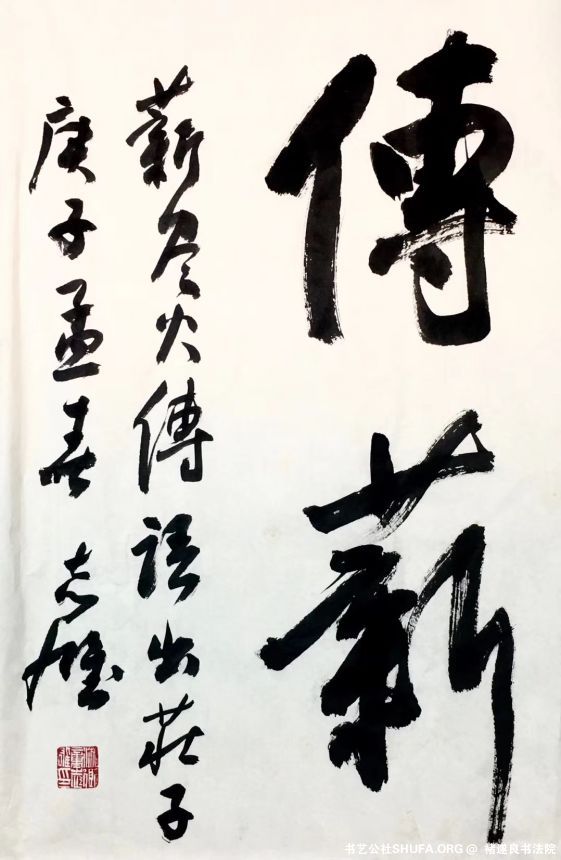 傳薪
薪尽火傳語出莊子
庚子孟春 志
书艺公社SHUFA.ORG @ 褚遂良书法院